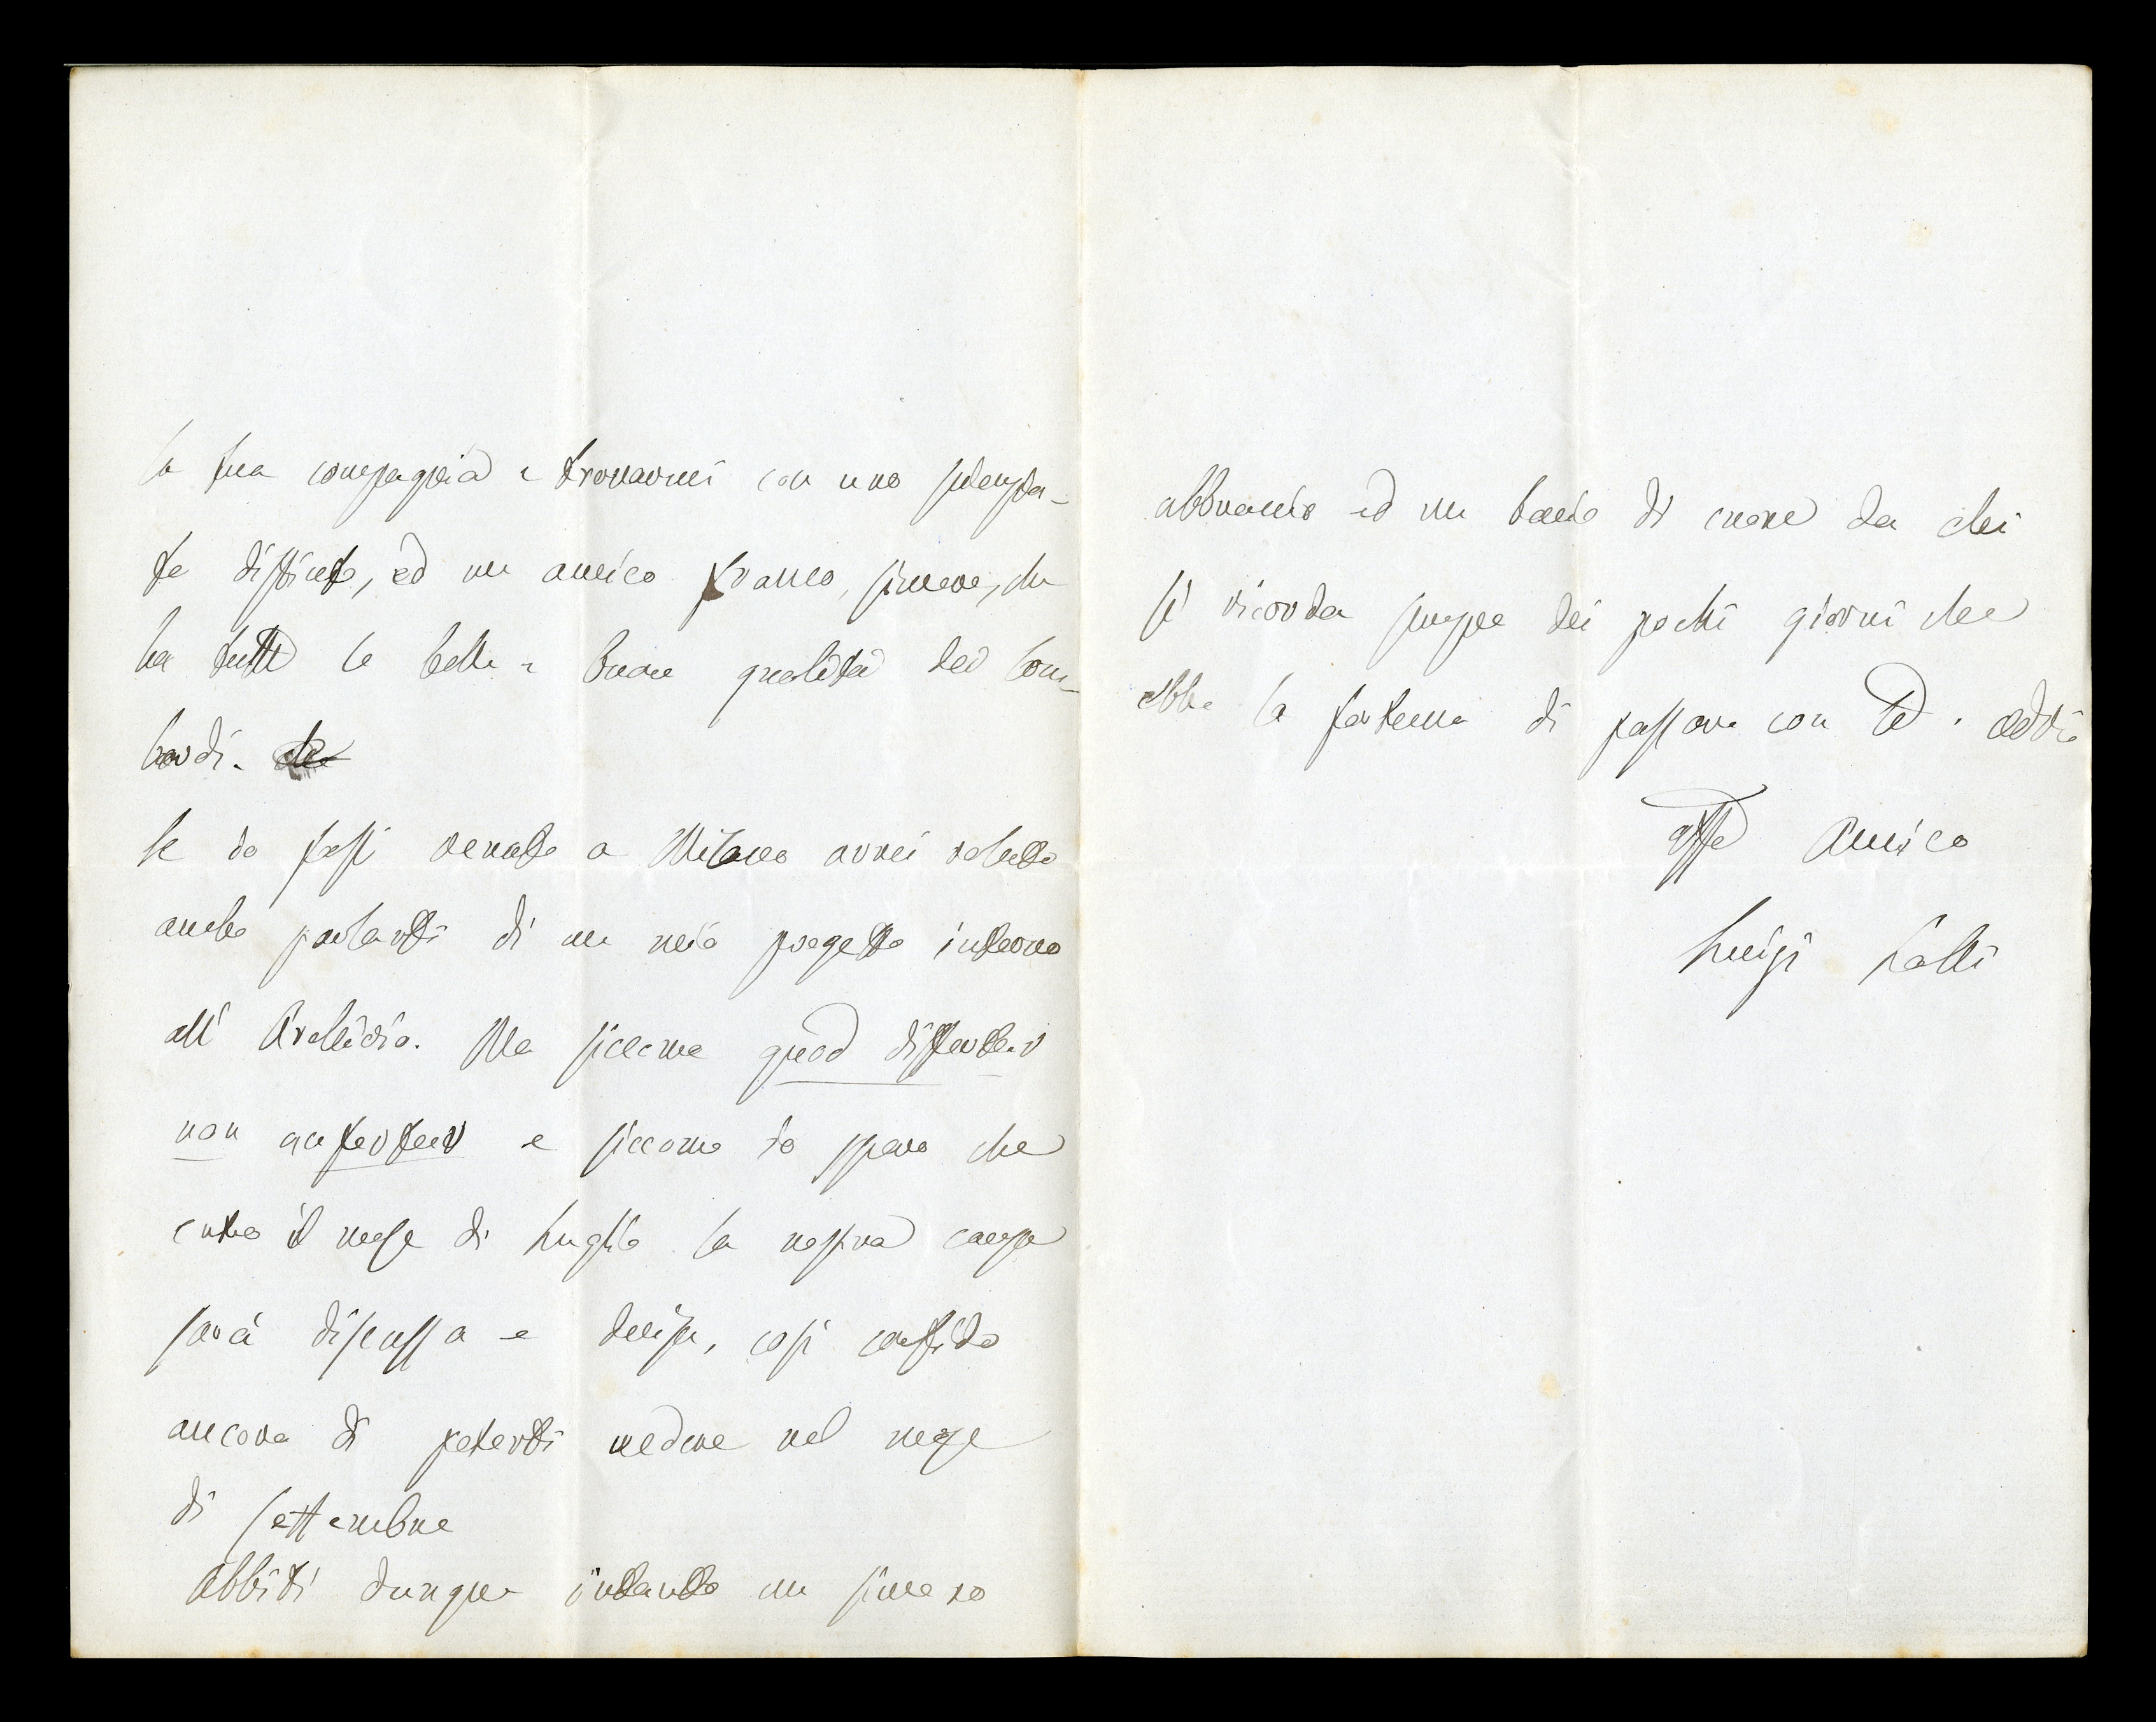 la tua compagnia e trovarmi con uno scienzia-
te distinto, ed un amico franco, sincero, che
ha tutte le belle e buone qualità dei Lom-
bardi.
Se io fossi venuto a Milano avrei voluto
anche parlarti di un mio progetto intorno
all'
Ma siccome quod differtur
non aufertur e siccome io spero che
entro il mese di Luglio la nostra causa
sarà discussa e decisa, così confido
ancora di poterti vedere nel mese
di Settembre
Abbiti dunque intanto un sincero
abbraccio ed un bacio di cuore da chi
si ricorda sempre dei pochi giorni che
ebbe la fortuna di passare con te. addio
affe Amico
Luigi